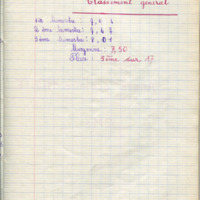 Classement général
1er trimestre : 7,
2ème trimestre : 7, 6 7
3ème trimestre : 8, 01
Moyenne : 7,50
Place : 5ème sur 17